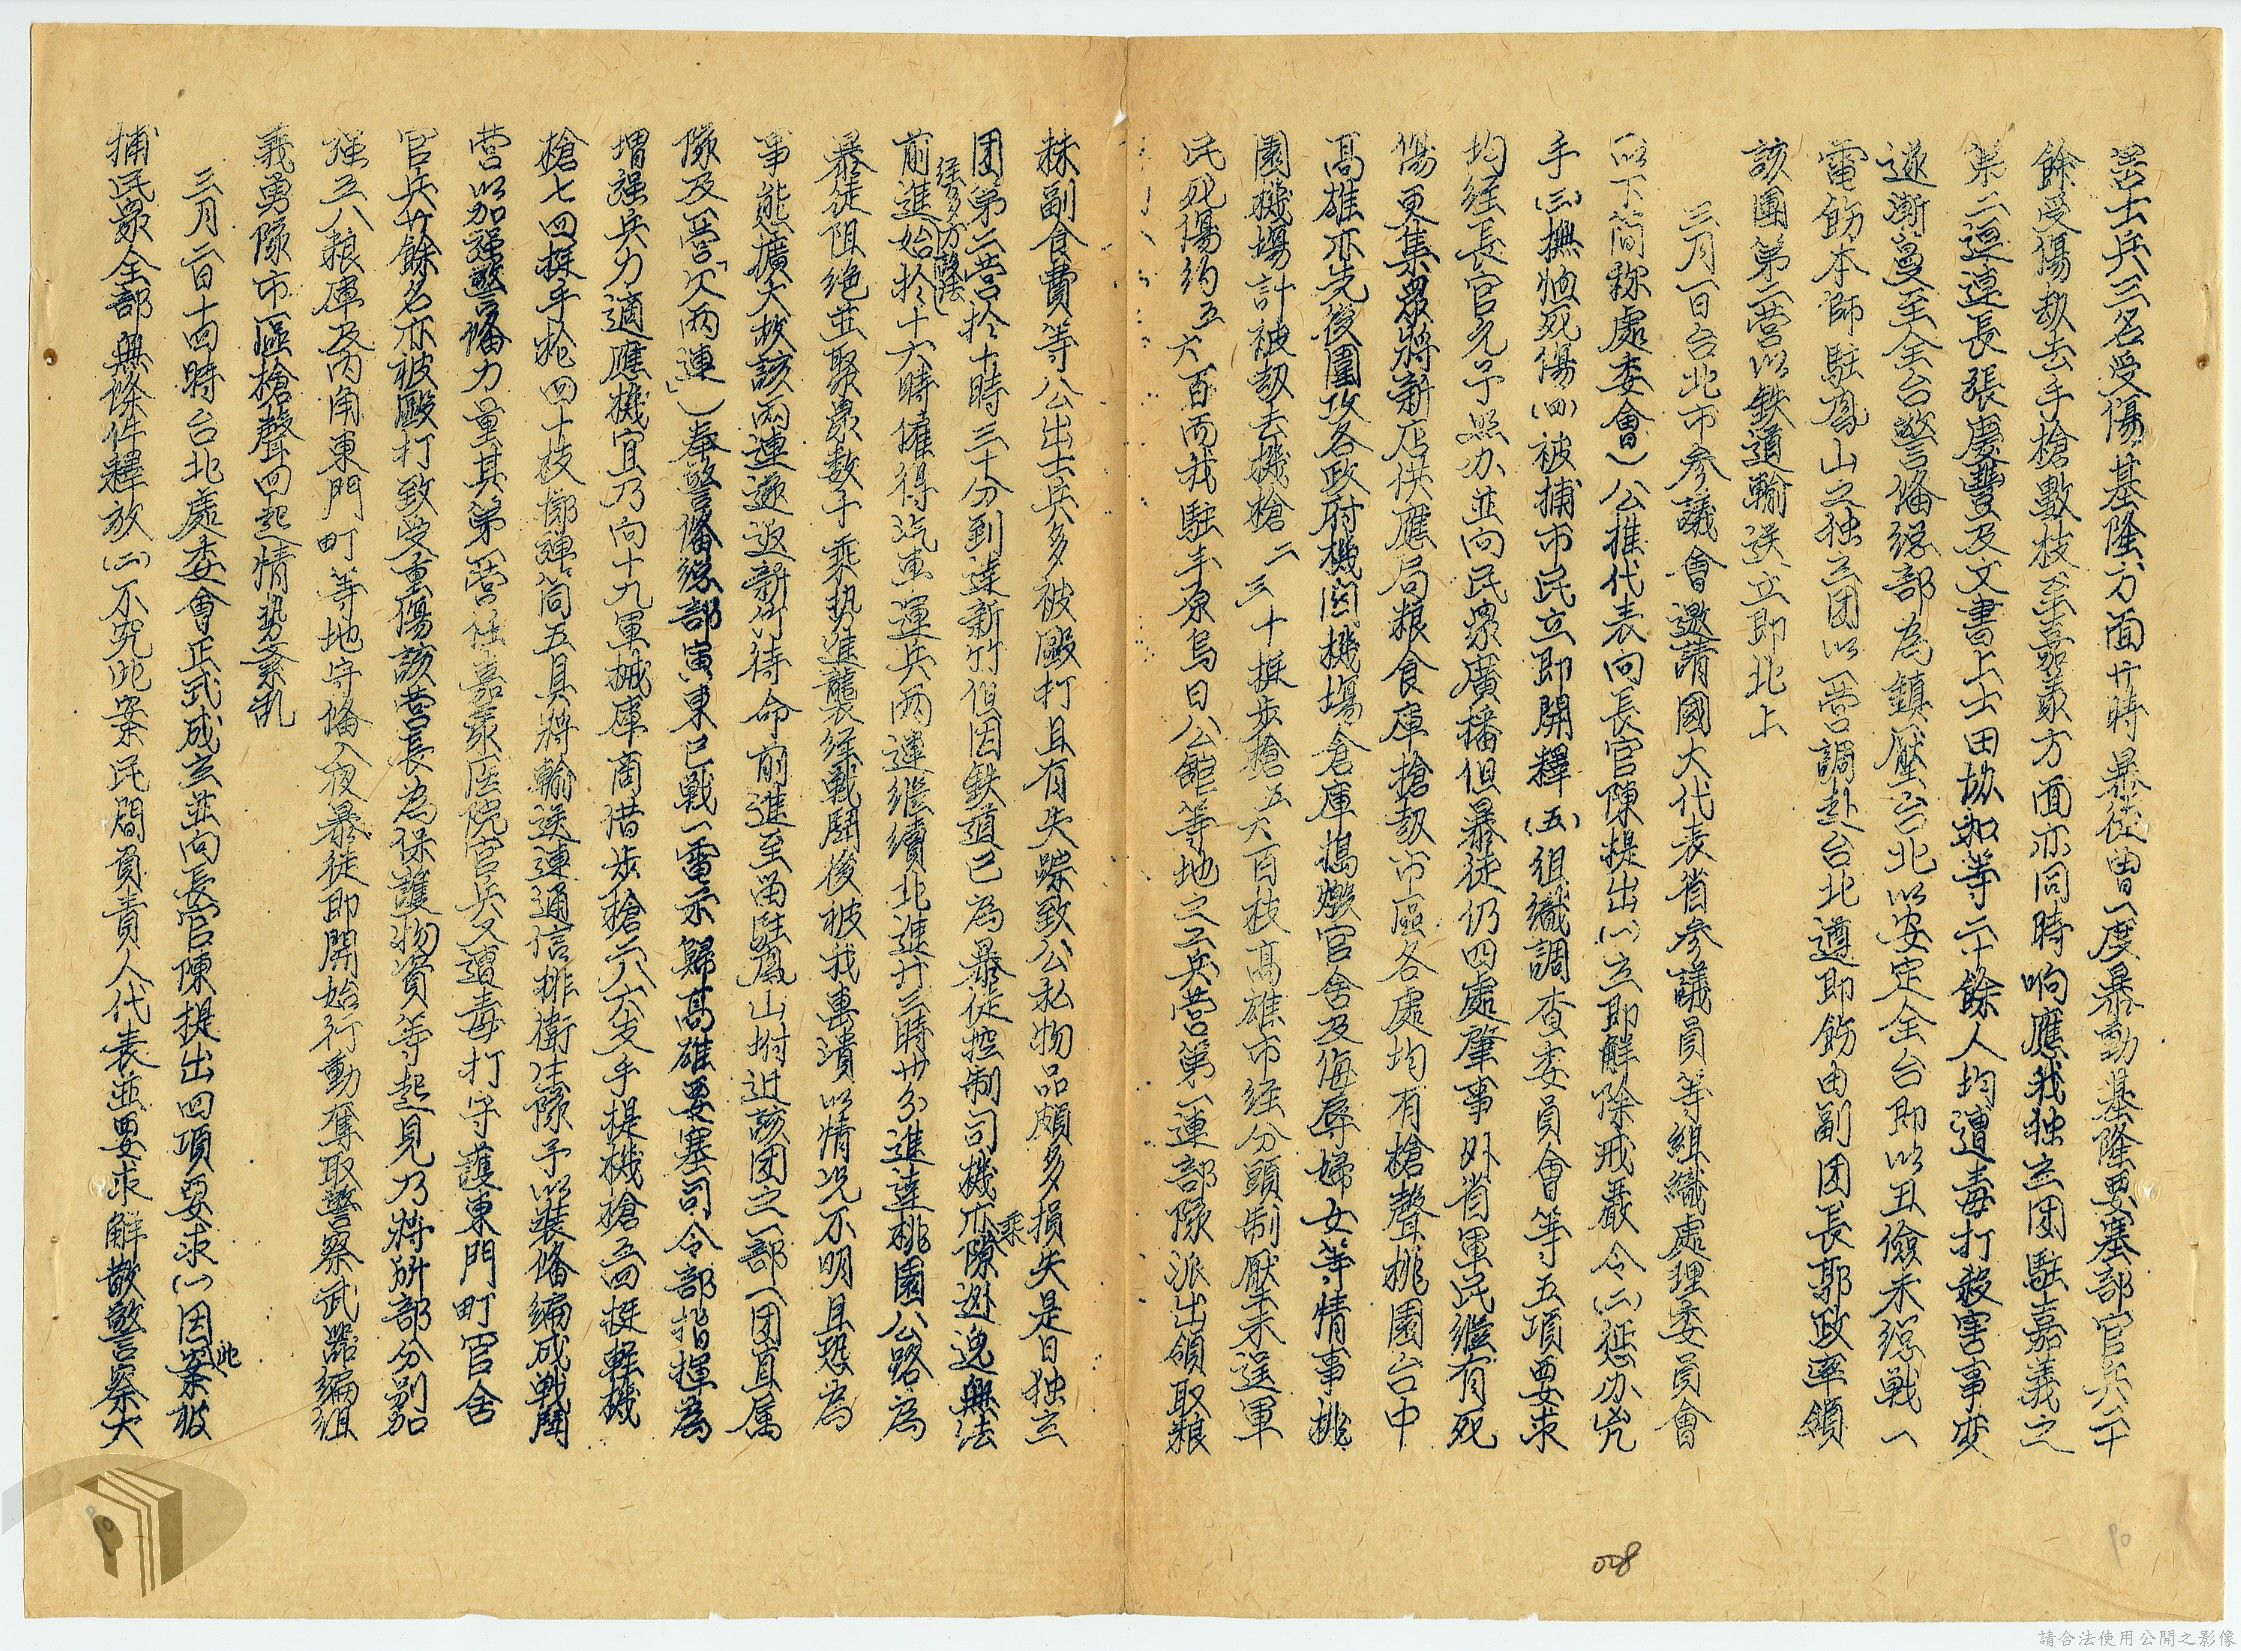 士兵三名受傷基隆方面廿時暴徒曾一度暴動基隆要塞部官兵二十
餘受傷劫去手槍數枝至嘉義方面亦同時响應我独立团駐嘉義之
第二連連長張慶豐及文書上士田協和等二十餘人均遭毒打殺害事变
遂漸蔓至全台警俻總部為鎮壓台北以安定全台即以丑儉未總戰一
電飭本師駐鳳山之独立团以一营調赴台北遵即飭由副团長郭政率領
該團第二营以鉄道輸送立即北上
三月一日台北市參議會邀請國大代表省參議員等組織處理委員會
以下簡称處委會)公推代表向長官陳提出(一)立即解除戒嚴令(二)惩办兇
手(三)撫恤死傷(四)被捕市民立即開釋(五)組織調查委員會等五項要求
均經長官允予照办並向民衆廣播但暴徒仍四處肇事外省軍民繼有死
傷更集衆將新店供應局粮食庫搶劫市區各處均有槍聲桃園台中
高雄亦先後圍攻各政府機関機塲倉庫搗燬官舍及侮辱婦女等情事桃
園機塲計被劫去機槍二三十挺步槍五六百枝高雄市經分頭制壓未逞軍
民死傷約五六百而我駐王烏日公舘等地之工兵营第一連部隊派出領取粮
秣副食費等公出士兵多被毆打且有失踪致公私物品頗多損失是日独立
团第二营於十時三十分到達新竹但因鉄道已為暴徒控制司機亦乘隙逃逸無法
前進經多方設法始於十六時僱得汽車運兵兩連繼續北進廿三時卅分進達桃園公路為
暴徒阻绝並聚衆数千乘勢進襲经戰鬪後被我擊潰以情况不明且恐為
事態擴大故該兩連遂返新竹待命前進至留駐鳳山坿近該团之一部(团直属
隊及一营「欠兩連」)奉警俻總部寅東巳戰一電示歸高雄要塞司令部指揮為
增强兵力適應機宜乃向十九軍械庫商借步槍二八六支手提機槍五四挺輕機
槍七四挺手枪四十枝擲彈筒五具將輸送連通信排衛生隊予以裝俻编成戰鬪
营以加强警俻力量其第一营住嘉義医院官兵又遭毒打守護東門町官舍
官兵廿餘名亦被毆打致受重傷該营長為保護物資等起見乃將所部分别加
强五八粮庫及内角東門町等地守俻入夜暴徒即開始行動奪取警察武器编组
義勇隊市區槍聲四起情势紊乱
三月二日十四時台北處委會正式成立並向長官陳提出四項要求(一)因此案被
捕民衆全部無條件釋放(二)不究此案民間負責人代表並要求解散警察大
008
請合法使用公開之影像